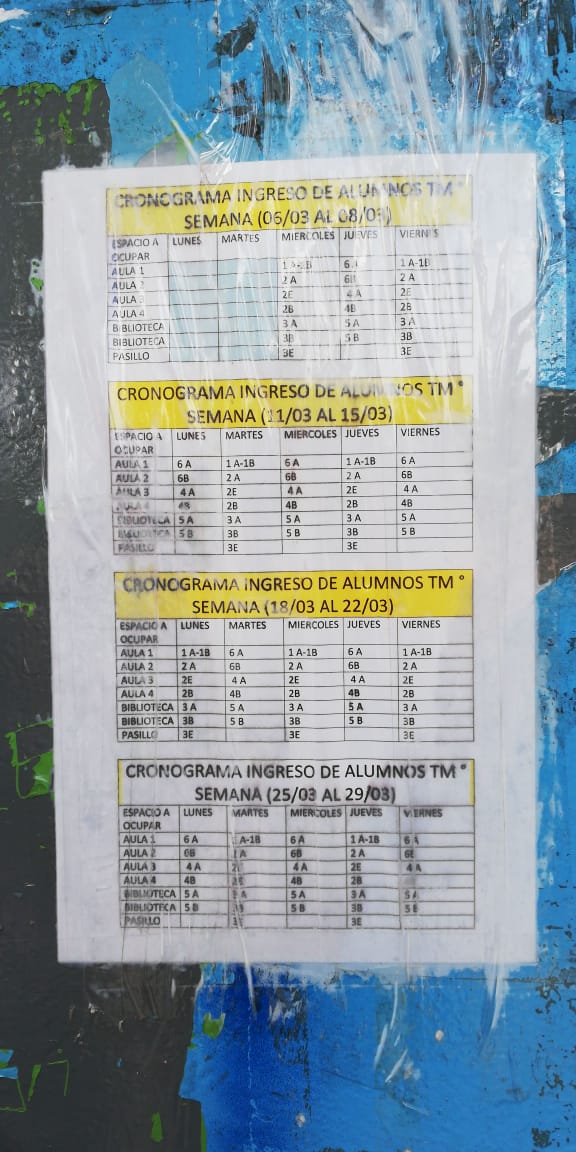 CRONOGRAMA INGRESO DE ALUMNOS TM °
SEMANA (06/03 AL 08/03)
ESPACIO A OCUPAR LUNES MARTES MIERCOLES JUEVES VIERNES
AULA 1 6 A 1 A-1B
AULA 2 2 A 6B 2 A
AULA 3 2E 4 A 2E
AULA 4 2B 4B 2B
BIBLIOTECA 3 A 5 A 3 A
BIBLIOTECA 3B 5 B 3B
PASILLO 3E 3E
CRONOGRAMA INGRESO DE ALUMNOS TM °
SEMANA (11/03 AL 15/03)
ESPACIO A OCUPAR LUNES MARTES MIERCOLES JUEVES VIERNES
AULA 1 6 A 1 A-1B 6 A 1 A-1B 6 A
AULA 2 6B 2 A 6B 2 A 6B
AULA 3 4 A 2E 4 A 2E 4 A
AULA 4 4B 2B 4B 2B 4B
BIBLIOTECA 5 A 3 A 5 A 3 A 5 A
BIBLIOTECA 5 B 3B 5 B 3B 5 B
PASILLO 3E 3E
CRONOGRAMA INGRESO DE ALUMNOS TM °
SEMANA (18/03 AL 22/03)
ESPACIO A OCUPAR LUNES MARTES MIERCOLES JUEVES VIERNES
AULA 1 1 A-1B 6 A 1 A-1B 6 A 1 A-1B
AULA 2 2 A 6B 2 A 6B 2 A
AULA 3 2E 4 A 2E 4 A 2E
AULA 4 2B 4B 2B 4B 2B
BIBLIOTECA 3 A 5 A 3 A 5 A 3 A
BIBLIOTECA 3B 5 B 3B 5 B 3B
PASILLO 3E 3E 3E
CRONOGRAMA INGRESO DE ALUMNOS TM °
SEMANA (25/03 AL 29/03)
ESPACIO A OCUPAR LUNES MARTES MIERCOLES JUEVES VIERNES
AULA 1 6 A 1 A-1B 6 A 1 A-1B 6 A
AULA 2 6B 2 A 6B 2 A 6B
AULA 3 4 A 2E 4 A 2E 4 A
AULA 4 4B 2B 4B 2B
BIBLIOTECA 5 A 3 A 5 A 3 A 5 A
BIBLIOTECA 5 B 3B 5 B 3B 5 B
PASILLO 3E 3E